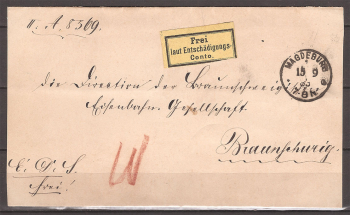 II. A. 8369.
Frei
laut Entschädigungs-
Conto.
MAGDEBURG
15 9
die Direction der Braunschweig.
Eisenbahn-Gesellschaft.
Braunschweig
frei!